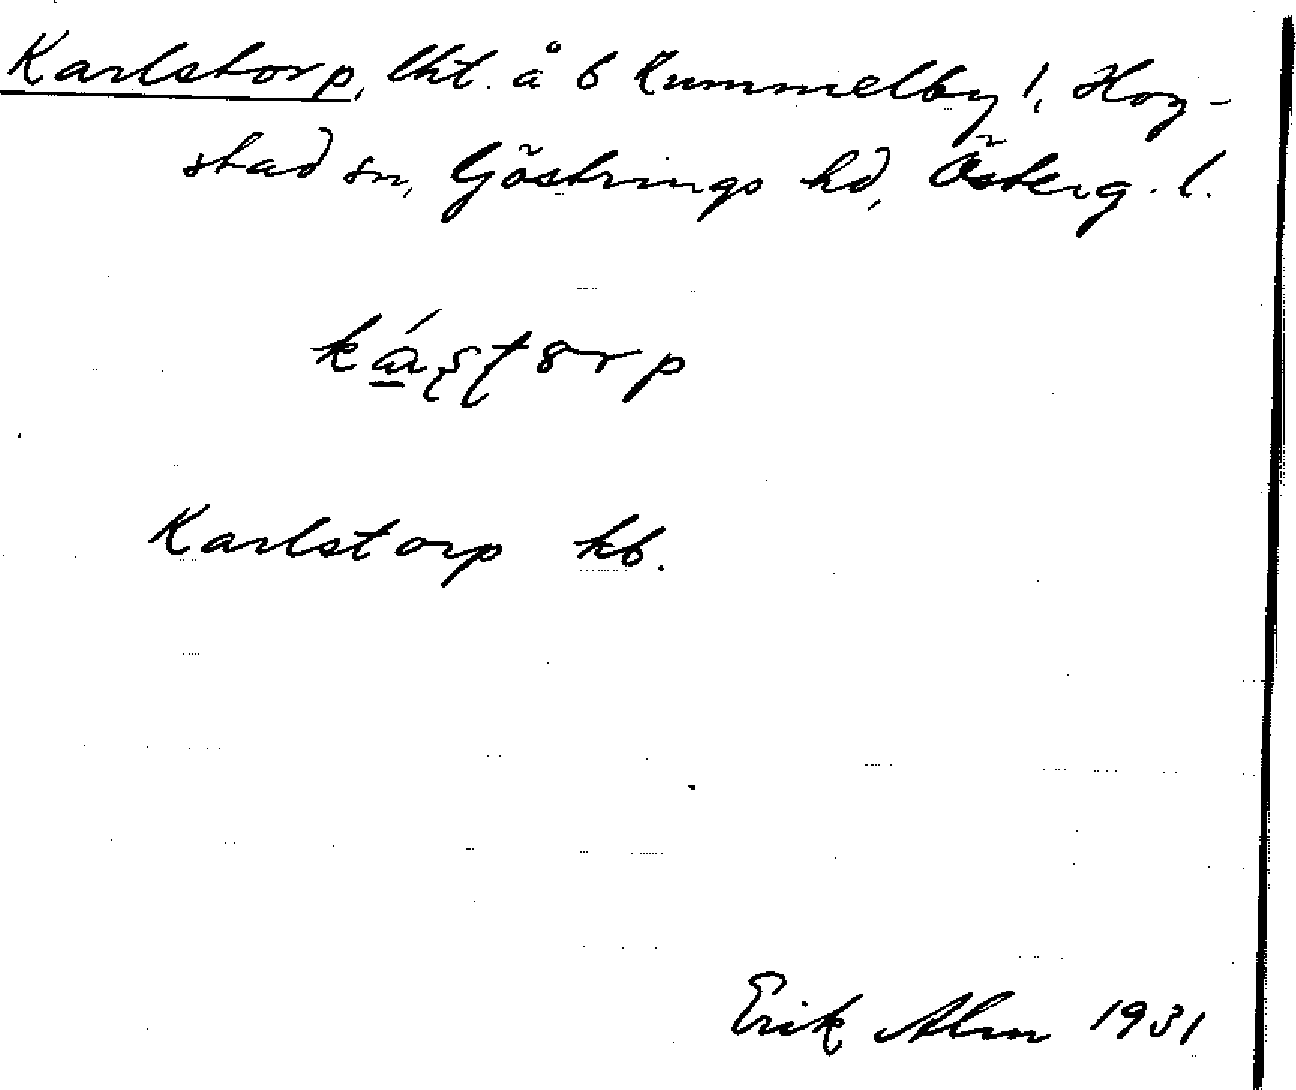 Karlstorp, lht. å b Kummelby 1, Hog-
stad sn, Göstrings hd, Österg. l.
ká̱ʂʈ8rp
Karlstorp kb.
Erik Alm 1931